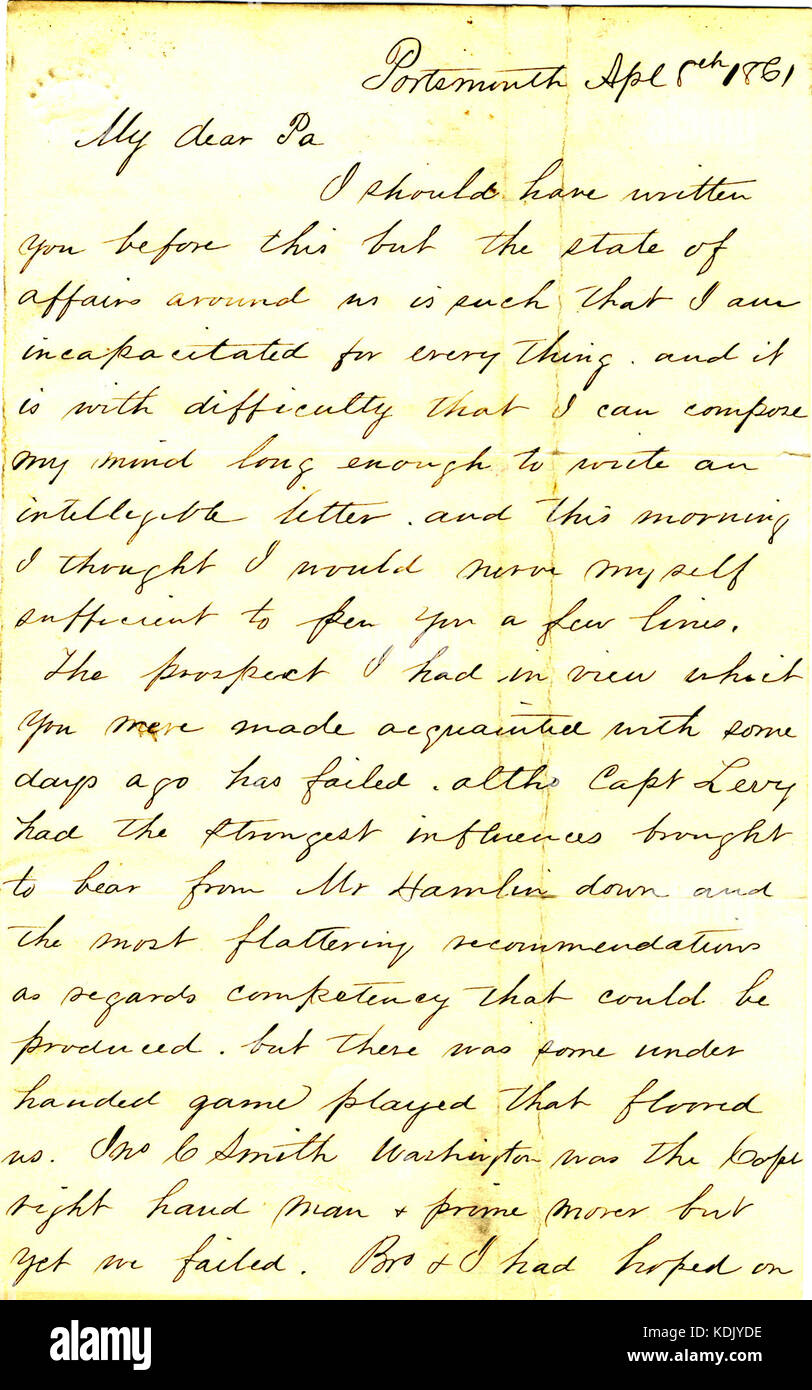 Portsmouth Apl 8th 1861
My dear Pa
I should have written
you before this but the state of
affairs around us is such that I am
incapacitated for every thing. and it
is with difficulty that I can compose
my mind long enough to write an
intellegible letter. and this morning
I thought I would nerve myself
sufficient to pen you a few lines.
The prospect I had in view which
you were made acquainted with some
days ago has failed. altho Capt Levy
had the strongest influences brought
to bear from Mr Hamlin down and
the most flattering recommendations
as regards competency that could be
produced. but there was some under
handed game played that floored
us. Jno C Smith Washington was the Capt
right hand man + prime mover but
yet we failed. Bro + I had hoped on
alamy
Image ID: KDJYDE
www.alamy.com